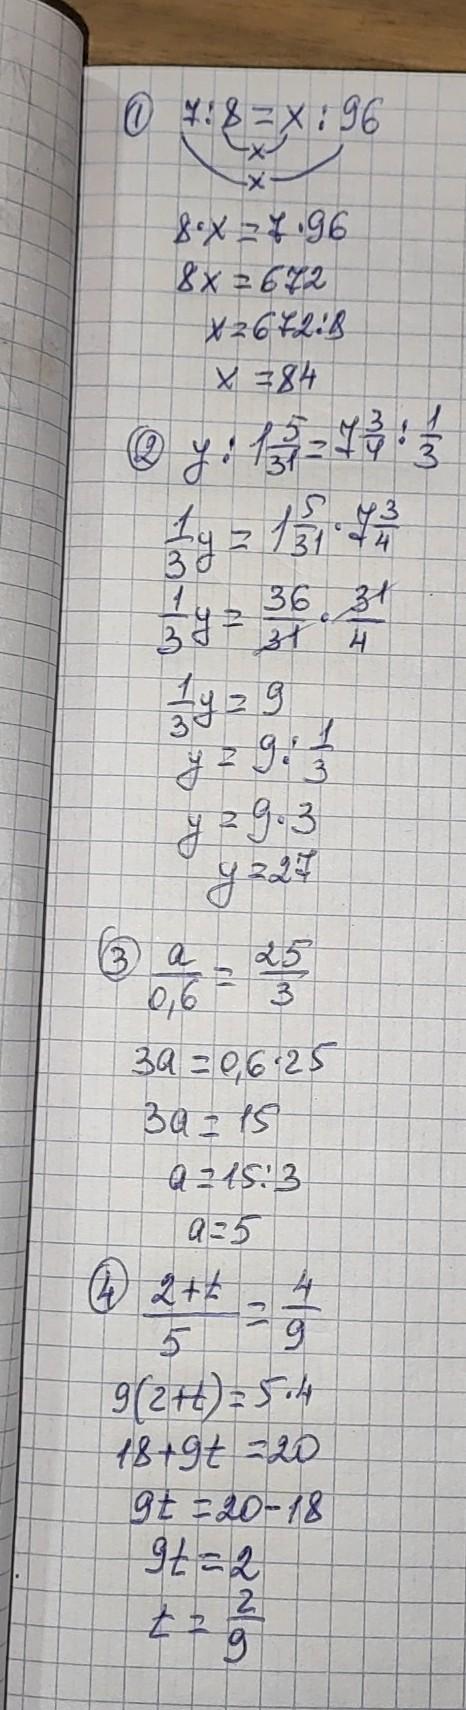 ① 7:8=x:96
x
x
8·x=7·96
8x=672
x=672:8
x=84
② y:1 5/31=7 3/4:1/3
1/3y=1 5/31·7 3/4
1/3y=36/31·31/4
1/3y=9
y=9:1/3
y=9·3
y=27
③ a/0,6=25/3
3a=0,6·25
3a=15
a=15:3
a=5
④ 2+t/5=4/9
9(2+t)=5·4
18+9t=20
9t=20-18
9t=2
t=2/9